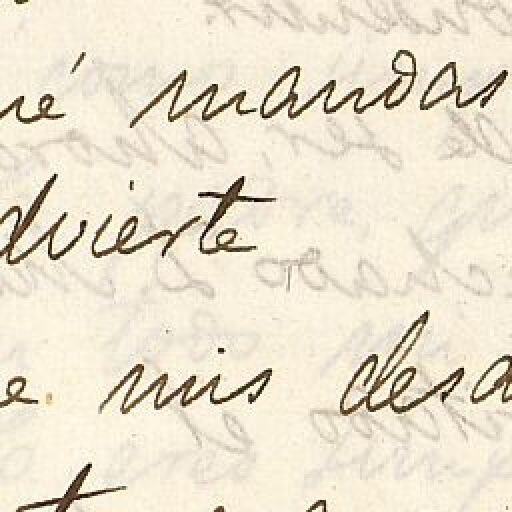 ué mandas
dvierte
e mis desa